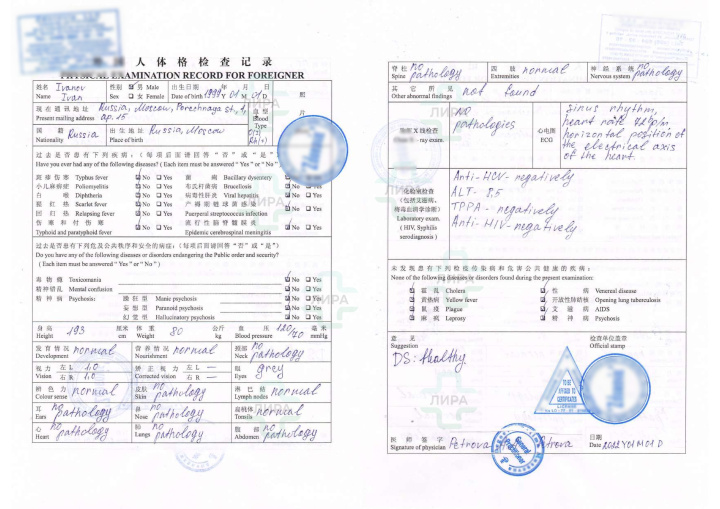 人体格检查记录
PHYSICAL EXAMINATION RECORD FOR FOREIGNER
姓名 Name Ivanov Ivan 性别 Sex 男 Male 女 Female 出生日期 年 月 日 Date of birth Y 01 M 01 D 照
现在通讯地址 Present mailing address Russia, Moscow, Porechnaya st., 1, ap. 15. 血型 Blood Type 片
国籍 Nationality Russia 出生地址 Place of birth Russia, Moscow 0(I) Rh(+)
过去是否患有下列疾病：（每项后面请回答“否”或“是”）
Have you ever had any of the following diseases? ( Each item must be answered “ Yes ” or “ No ” )
斑疹伤寒 Typhus fever No Yes 菌痢 Bacillary dysentery No Yes
小儿麻痹症 Poliomyelitis No Yes 布氏杆菌病 Brucellosis No Yes
白喉 Diphtheria No Yes 病毒性肝炎 Viral hepatitis No Yes
猩红热 Scarlet fever No Yes 产褥期链球菌感染
回归热 Relapsing fever No Yes Puerperal streptococcus infection No Yes
伤寒和付伤寒 流行性脑脊髓膜炎
Typhoid and paratyphoid fever No Yes Epidemic cerebrospinal meningitis No Yes
过去是否患有下列危及公共秩序和安全的病症：（每项后面请回答“否”或“是”）
Do you have any of the following diseases or disorders endangering the Public order and security?
( Each item must be answered “ Yes ” or “ No ” )
毒物瘾 Toxicomania No Yes
精神错乱 Mental confusion No Yes
精神病 Psychosis: 躁狂型 Manic psychosis No Yes
妄想型 Paranoid psychosis No Yes
幻觉型 Hallucinatory psychosis No Yes
身高 Height 193 厘米 cm 体重 Weight 80 公斤 kg 血压 Blood pressure 120/70 毫米 mmHg
发育情况 Development normal 营养情况 Nourishment normal 颈部 Neck no pathology
视力 Vision 左 L 1.0 右 R 1.0 矫正视力 Corrected vision 左 L — 右 R — 眼 Eyes grey
辨色力 Colour sense normal 皮肤 Skin no pathology 淋巴结 Lymph nodes normal
耳 Ears no pathology 鼻 Nose no pathology 扁桃体 Tonsils normal
心 Heart no pathology 肺 Lungs no pathology 腹部 Abdomen no pathology
脊柱 Spine no pathology 四肢 Extremities normal 神经系统 Nervous system no pathology
其它所见 Other abnormal findings not found
X线检查 - ray exam. no pathologies 心电图 ECG Sinus rhythm, heart rate 72 b/m, horizontal position of the electrical axis of the heart.
化验室检查 （包括艾滋病、梅毒血清学诊断） Laboratory exam. ( HIV, Syphilis serodiagnosis )
Anti-HCV - negatively
ALT - 8.5
TPPA - negatively
Anti-HIV - negatively
未发现患有下列检疫传染病和危害公共健康的疾病：
None of the following diseases or disorders found during the present examination:
霍乱 Cholera 性病 Venereal disease
黄热病 Yellow fever 开放性肺结核 Opening lung tuberculosis
鼠疫 Plague 艾滋病 AIDS
麻风 Leprosy 精神病 Psychosis
意见 检查单位盖章
Suggestion Official stamp
DS: Healthy.
TO BE AFFIXED TO CERTIFICATES
医师签字 日期
Signature of physician Petrova Petrova Date 2022 Y 01 M 01 D
ЛИРА
ЛИРА
ЛИРА
ЛИРА
ЛИРА